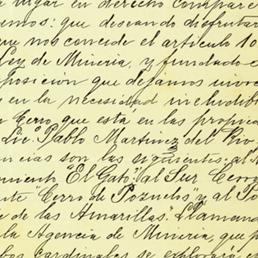 lugar en derecho compare
emos: que deseando disfrutar
que nos concede el artículo 10
Ley de Minería, y fundado e
posición que dejamos invoc
en la necesidad ineludib
Cerro, que está en las propied
Lic. Pablo Martinez del Rio
ncias son las siguientes: al N
miento "El Gato", al Sur Cerro
nte "Cerro de Pozuelos" y al Po
de las Amarillas. Llamand
la Agencia de Minería, que p
bos cardinales se explorará e